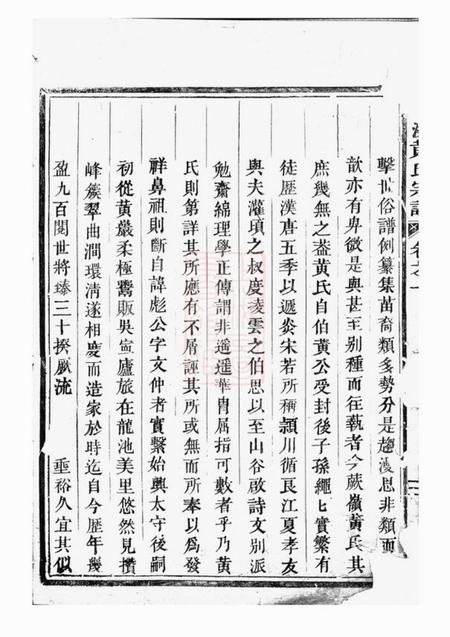 黄氏宗譜 卷之一
擊世俗譜例纂集苗裔類多勢分是趨漫思非類而
歆亦有卑微是輿甚至别種而在執者今蕨嶺黄氏其
庶幾無之葢黄氏自伯黄公受封後子孫繩匕實繁有
徒歷漢唐五季以遞炎宋若所稱頴川循良江夏孝友
與夫灌頊之叔度凌雲之伯思以至山谷啟詩文别派
勉齋綿理學正傳謂非遥遥華胄屬指可數者乎乃黄
氏則第詳其所應有不屑誣其所或無而所奉以爲發
祥鼻祖則斷自諱彪公字文仲者實繫始興太守後嗣
初從黄嚴柔極鸑販吴寅廬旅在龍池美里悠然見攢
峰簇翠曲澗環清遂相慶而造家於時迄自今歷年幾
盈九百閱世將臻三十揆厥流 垂裕久宜其似